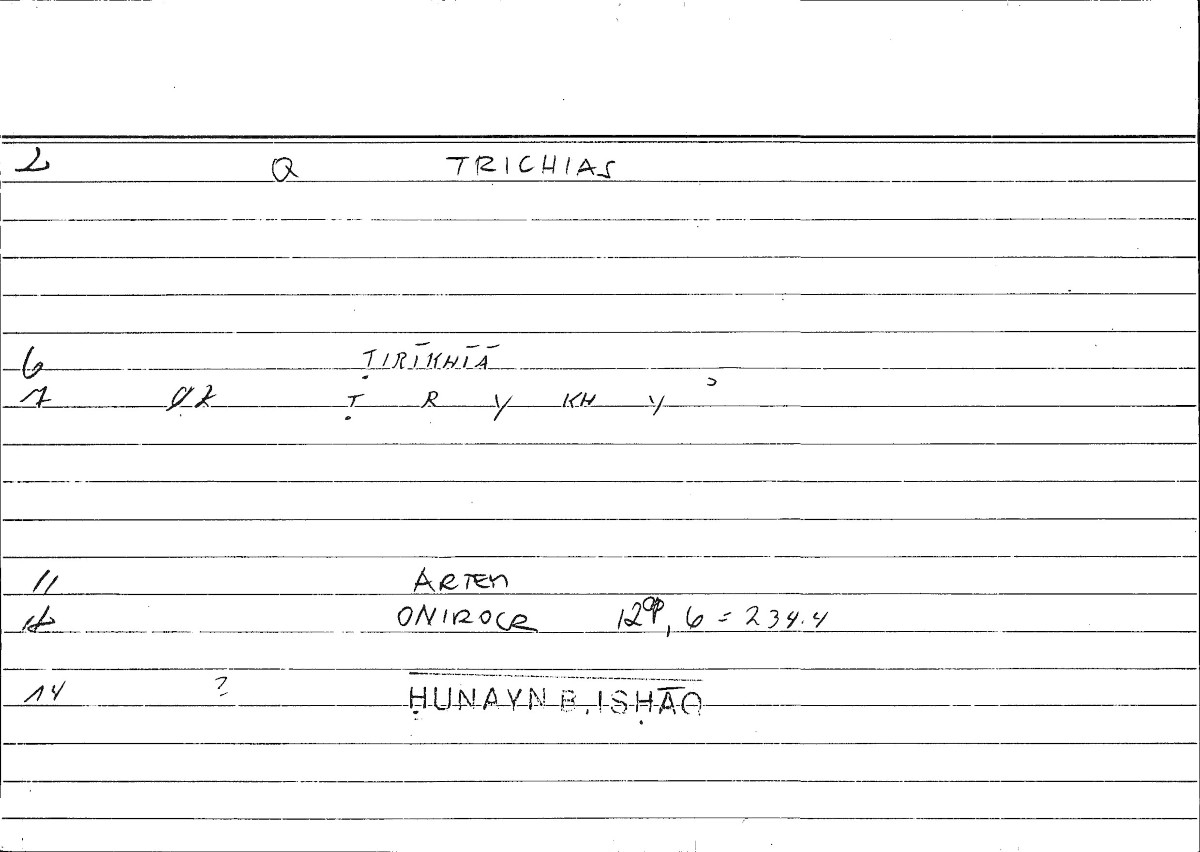 2 Q TRICHIAS
6 ṬIRĪKHĪĀ
7 02 Ṭ R Y KH Y ʾ
11 ARTEM
12 ONIROCR 129, 6 = 234.4
14 ? ḤUNAYN B. ISḤĀQ